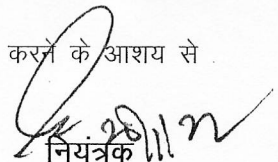 करने के आशय से
नियंत्रक